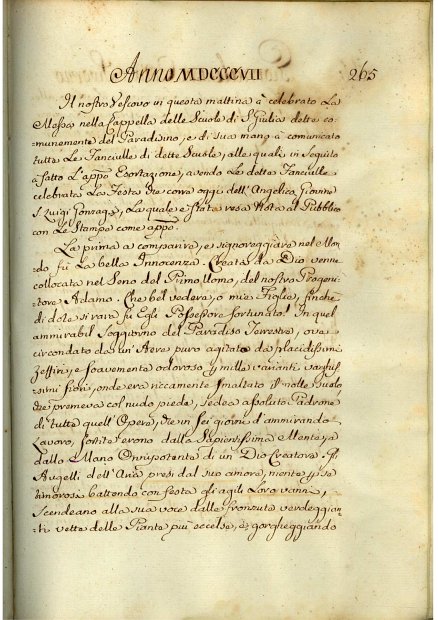 Anno MDCCCVII 265
Il nostro Vescovo in questa mattina à celebrato La
Messa nella Cappella delle Scuole di S. Giulia dette co-
munemente del Paradisino, e di sua mano à comunicato
tutte Le Fanciulle di dette Scuole, alle quali in Seguito
à fatto L'app.e Esortazione, avendo Le dette Fanciulle
celebrata La Festa che corre oggi dell'Angelico Giovine
S. Luigi Gonzaga, La quale è stata resa Nota al Pubblico
con Le Stampe come app.e
La prima a comparire, e signoreggiare nel Mon-
do fù La bella Innocenza. Creata da Dio venne
collocata nel Seno del Primo Uomo, del nostro Progeni-
tore Adamo. Che bel vedere, o mie Figlie, finchè
di dote sì rara fù Egli Possessore fortunato! In quel
ammirabil Soggiorno del Paradiso Terrestre, ove
circondato da un'Aere puro agitato da placidissimi
Zeffiri, e soavemente odoroso per mille varianti vaghis-
simi fiori, onde era riccamente Smaltato il molle Suolo
che premeva col nudo piede, sedea assoluto Padrone
di tutta quell'Opera, che in Sei giorni d'ammirando
Lavoro, sortita erano dalla Sapientissima Mente, e
dalla Mano Onnipotente di un Dio Creatore. Gli
Augelli dell'Aria presi dal suo amore,
amorosa battendo con festa gli agili Loro vanni,
Scendeano alla sua voce dalle fronzute verdeggian-
ti vette delle Piante più eccelse, e gorgheggiando